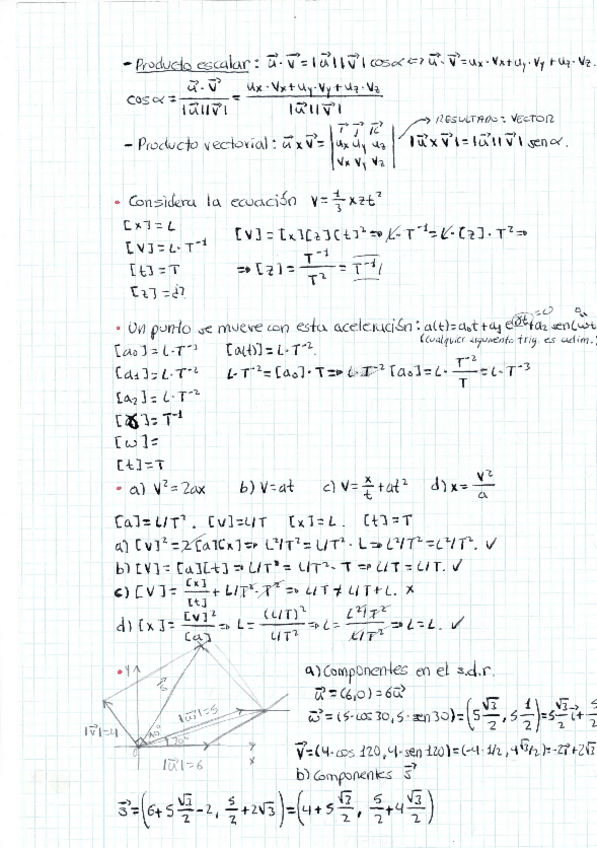 - Producto escalar: u⃗·v⃗=|u⃗||v⃗|cosα⇔u⃗·v⃗=ux·vx+uy·vy+uz·vz.
cosα = u⃗·v⃗ / |u⃗||v⃗| = ux·vx+uy·vy+uz·vz / |u⃗||v⃗|
RESULTADO: VECTOR
- Producto vectorial: u⃗xv⃗= | i⃗ j⃗ k⃗ | ux uy uz | vx vy vz | |u⃗xv⃗|=|u⃗||v⃗|senα.
• Considera la ecuación v=1/3 xzt²
[x]=L
[v]=L·T⁻¹ [v]=[x][z][t]²⇒L·T⁻¹=L·[z]·T²⇒
[t]=T ⇒[z]=T⁻¹/T²=T⁻¹
[z]=¿?
• Un punto se mueve con esta aceleración: a(t)=a₀t+a₁e^γt+a₂sen(ωt
(cualquier argumento trig. es adim.)
[a₀]=L·T⁻³ [a(t)]=L·T⁻².
[a₁]=L·T⁻² L·T⁻²=[a₀]·T⇒L·T⁻² [a₀]=L·T⁻²/T=L·T⁻³
[a₂]=L·T⁻²
[γ]=T⁻¹
[ω]=
[t]=T
• a) v²=2ax b) v=at c) v=x/t+at² d) x=v²/a
[a]=L/T². [v]=L/T [x]=L. [t]=T
a) [v]²=2[a][x]⇒L²/T²=L/T²·L⇒L²/T²=L²/T². ✓
b) [v]=[a][t]⇒L/T=L/T²·T⇒L/T=L/T. ✓
c) [v]=[x]/[t]+L/T²·T²⇒L/T≠L/T+L. x
d) [x]=[v]²/[a]⇒L=(L/T)²/L/T²⇒L=L²/T²/L/T²⇒L=L. ✓
• y
a) Componentes en el s.d.r.
u⃗=(6,0)=6u⃗
|w⃗|=5
w⃗=(5·cos30,5·sen30)=(5√3/2, 5 1/2)=5√3/2 i⃗+5
|v⃗|=4
v⃗=(4·cos120,4·sen120)=(-4·1/2,4√3/2)=-2i⃗+2√3
x
|u⃗|=6
b) Componentes s⃗
s⃗=(6+5√3/2-2, 5/2+2√3)=(4+5√3/2, 5/2+4√3/2)